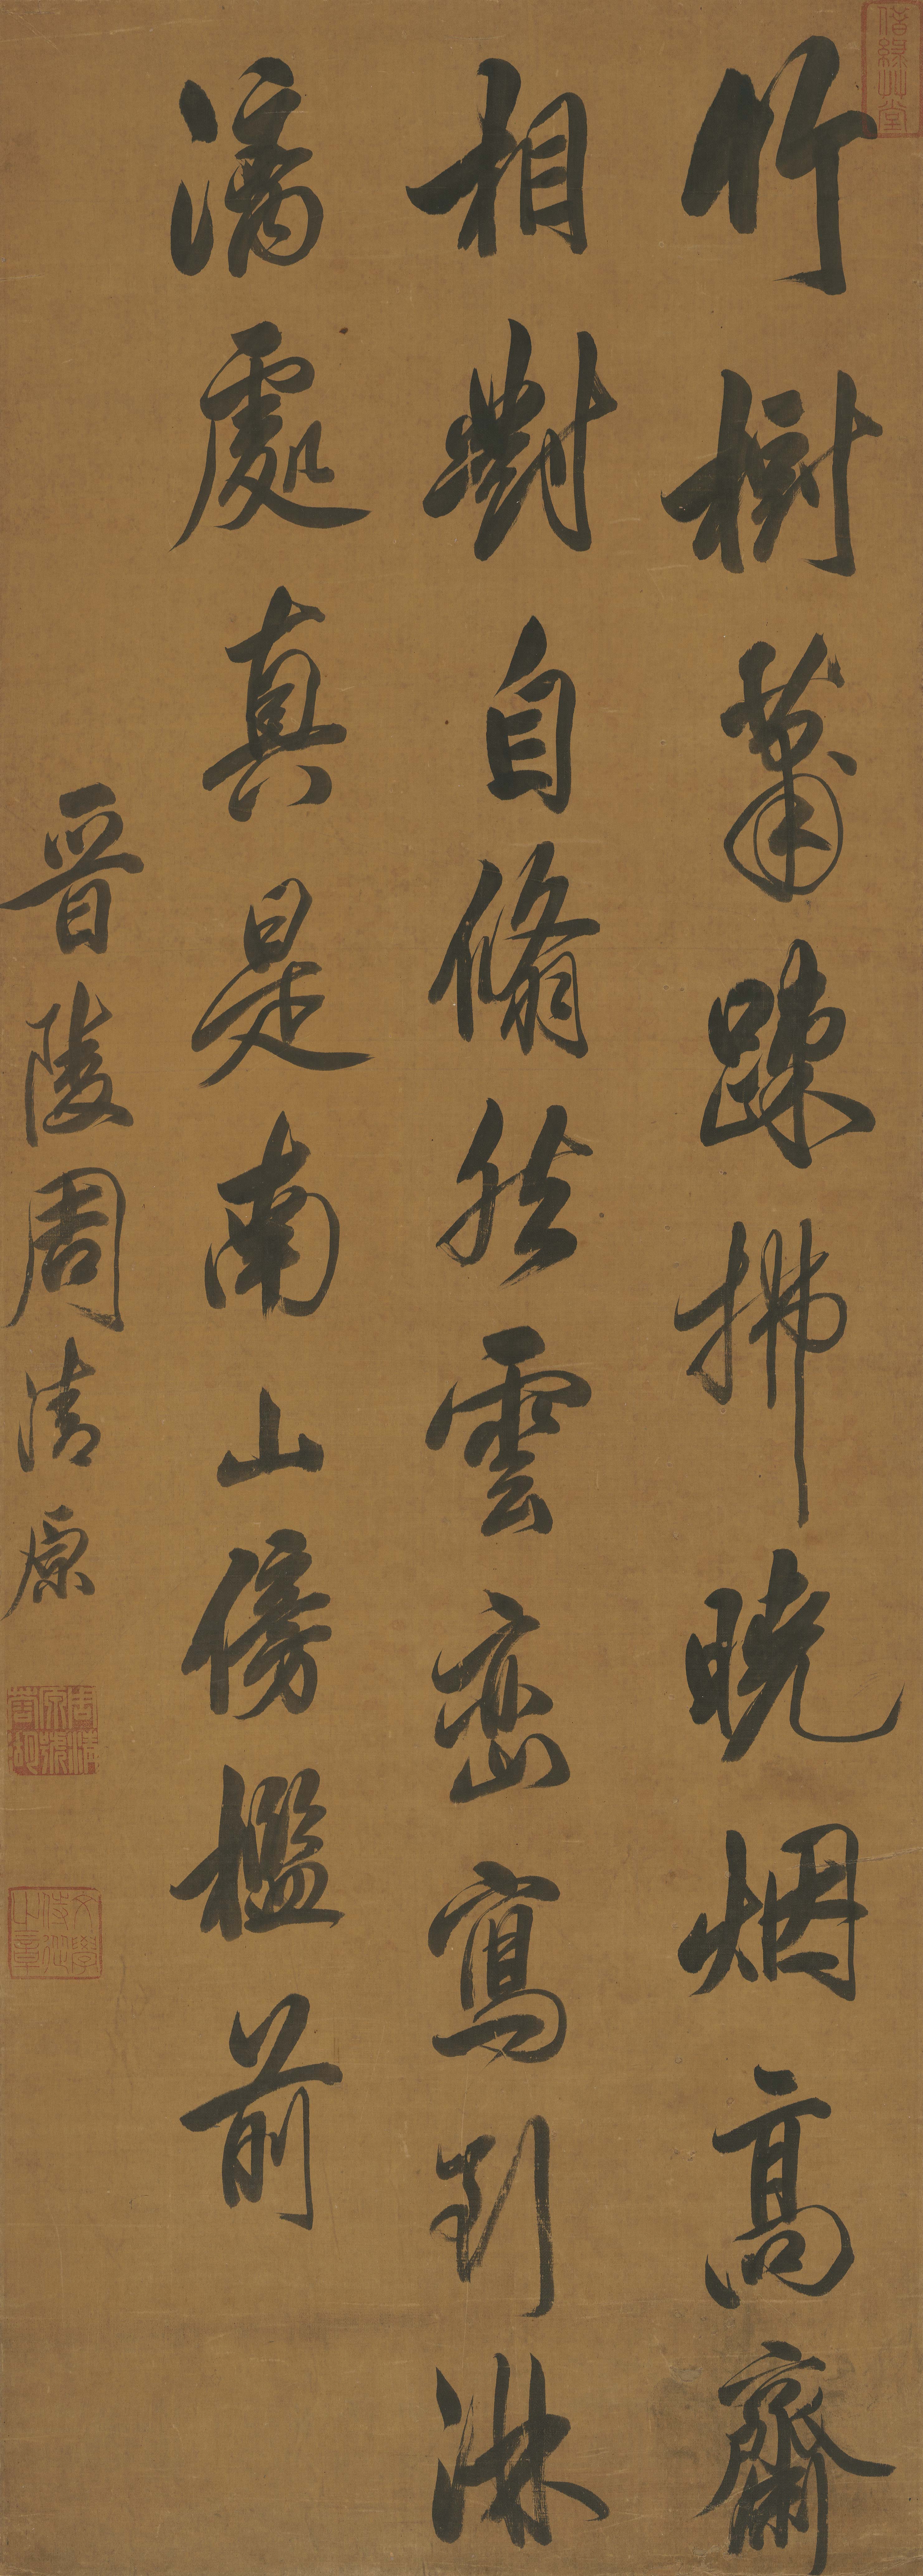 竹樹蕭踈拂曉烟高齋
相對自翛然雲巒寫到淋
漓處真是南山傍檻前
晉陵周清原